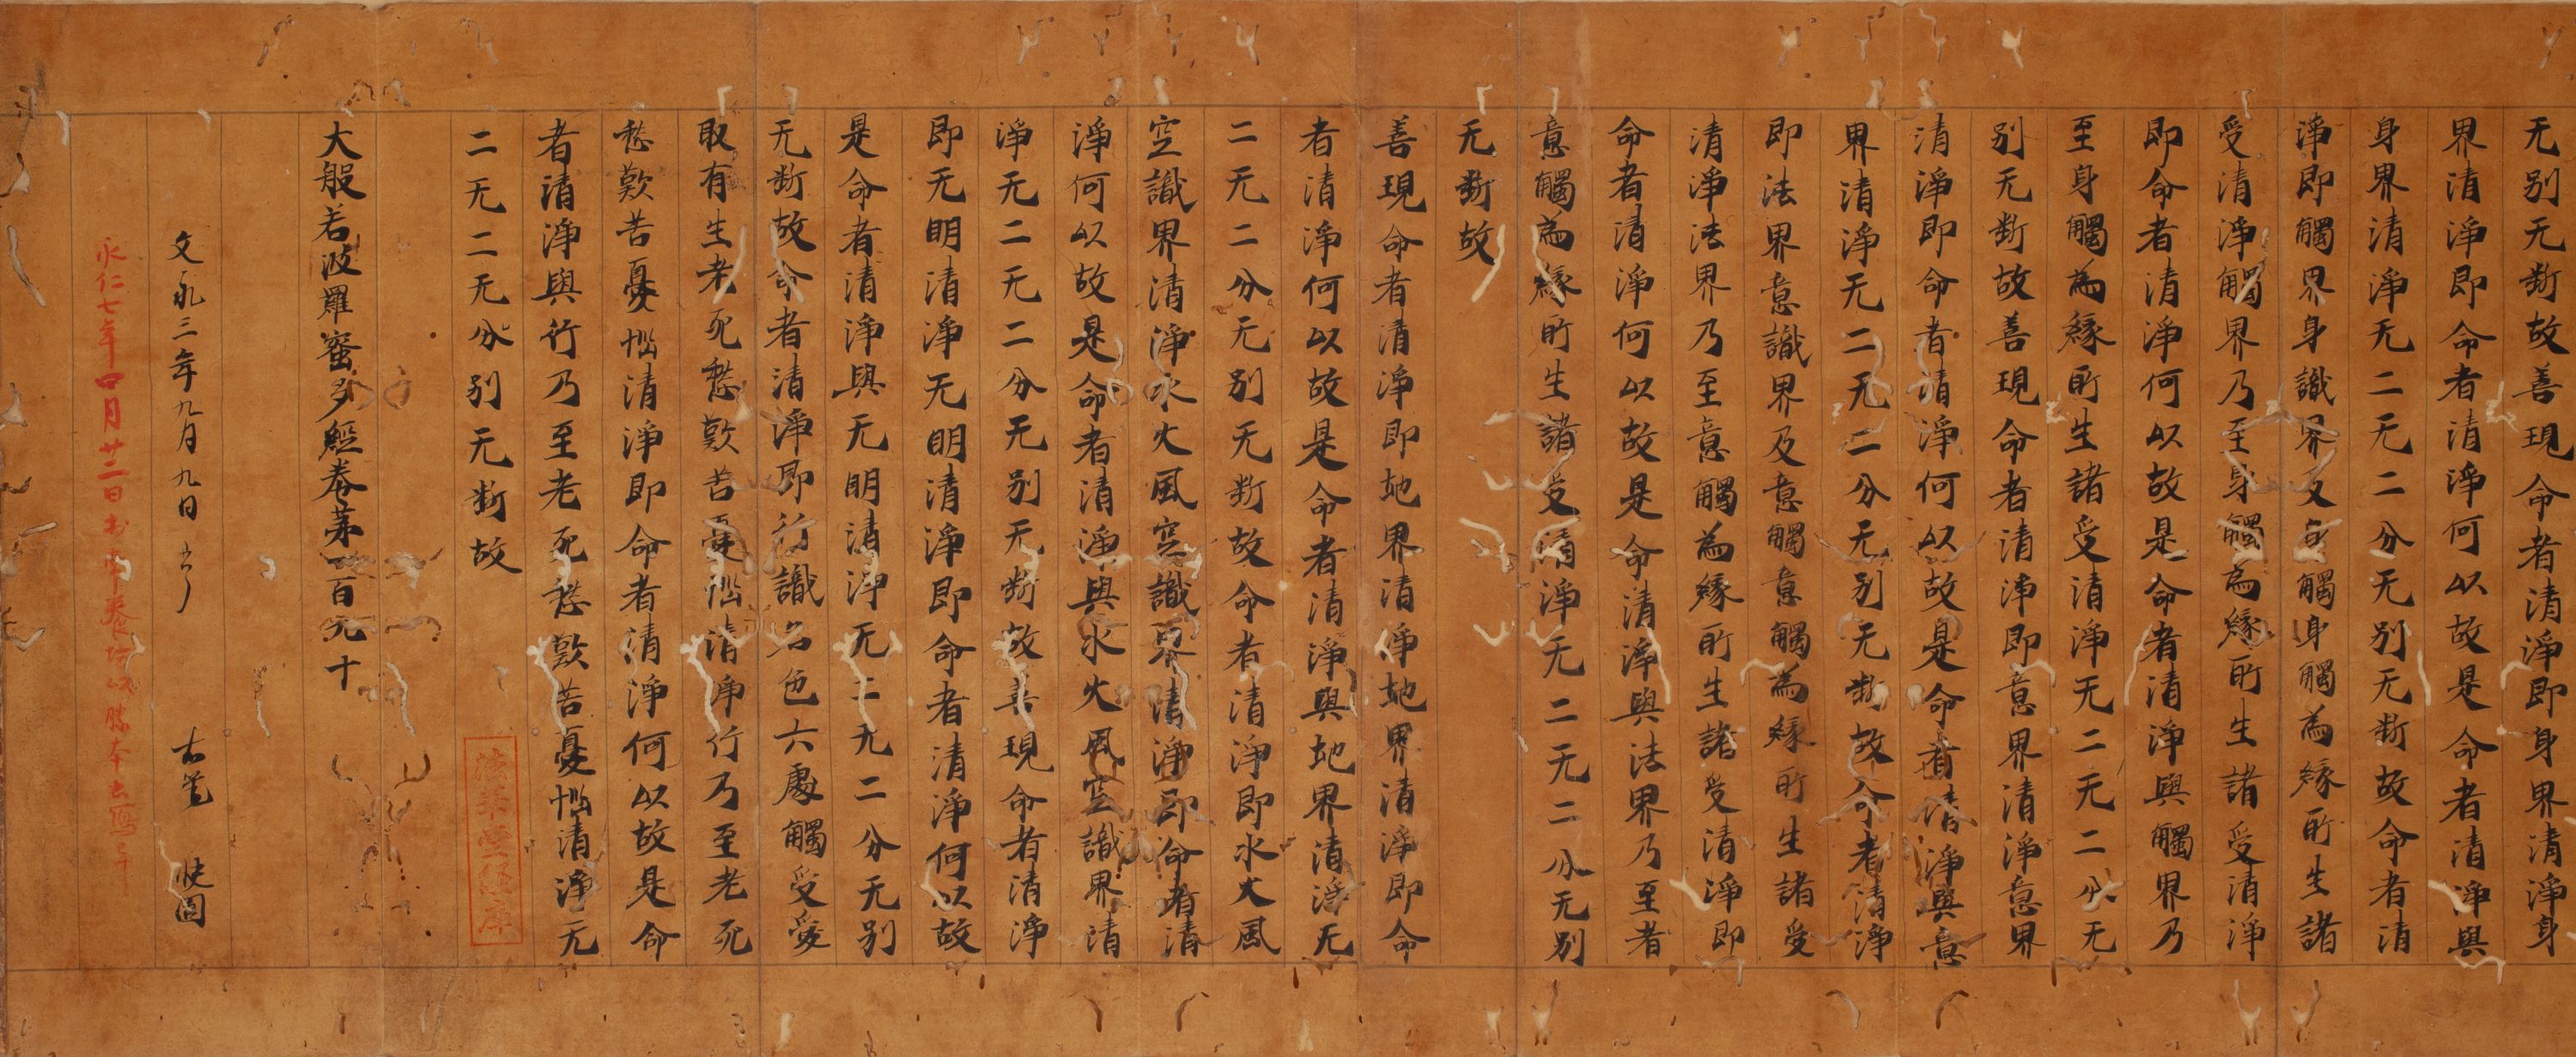 无別无断故善現命者清淨即身界清淨身
界清淨即命者清淨何以故是命者清淨與
身界清淨无二无二分无別无断故命者清
淨即觸界身識界及身觸身觸為縁所生諸
受清淨觸界乃至身觸為縁所生諸受清淨
即命者清淨何以故是命者清淨與觸界乃
至身觸為縁所生諸受清淨无二无二分无
別无断故善現命者清淨即意界清淨意界
清淨即命者清淨何以故是命者清淨與意
界清淨无二无二分无別无断故命者清淨
即法界意識界及意觸意觸為縁所生諸受
清淨法界乃至意觸為縁所生諸受清淨即
命者清淨何以故是命清淨與法界乃至者
意觸為縁所生諸受清淨无二无二分无別
无断故
善現命者清淨即地界清淨地界清淨即命
者清淨何以故是命者清淨與地界清淨无
二无二分无別无断故命者清淨即水火風
空識界清淨水火風空識界清淨即命者清
淨何以故是命者清淨與水火風空識界清
淨无二无二分无別无断故善現命者清淨
即无明清淨无明清淨即命者清淨何以故
是命者清淨與无明清淨无二无二分无別
无断故命者清淨即行識名色六處觸受愛
取有生老死愁歎苦憂惱清淨行乃至老死
愁歎苦憂惱清淨即命者清淨何以故是命
者清淨與行乃至老死愁歎苦憂惱清淨无
二无二无分別无断故
大般若波羅蜜多經巻苐一百九十
文永三年九月九日 右筆 快圓
永仁七年四月廿二日 勝本
法 經庫